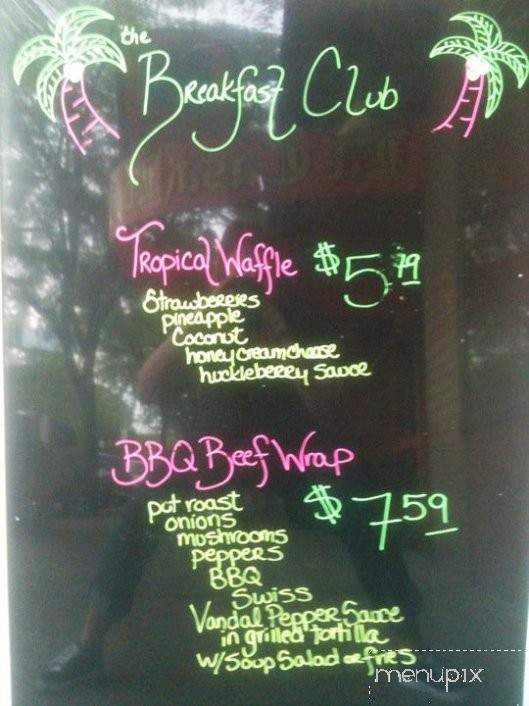 the
Breakfast Club
Tropical Waffle $5.79
Strawberries
pineapple
Coconut
honey creamcheese
huckleberry sauce
BBQ Beef Wrap
$7.59
pot roast
onions
mushrooms
peppers
BBQ
Swiss
Vandal Pepper Sauce
in grilled tortilla
w/Soup Salad or fries
menupix